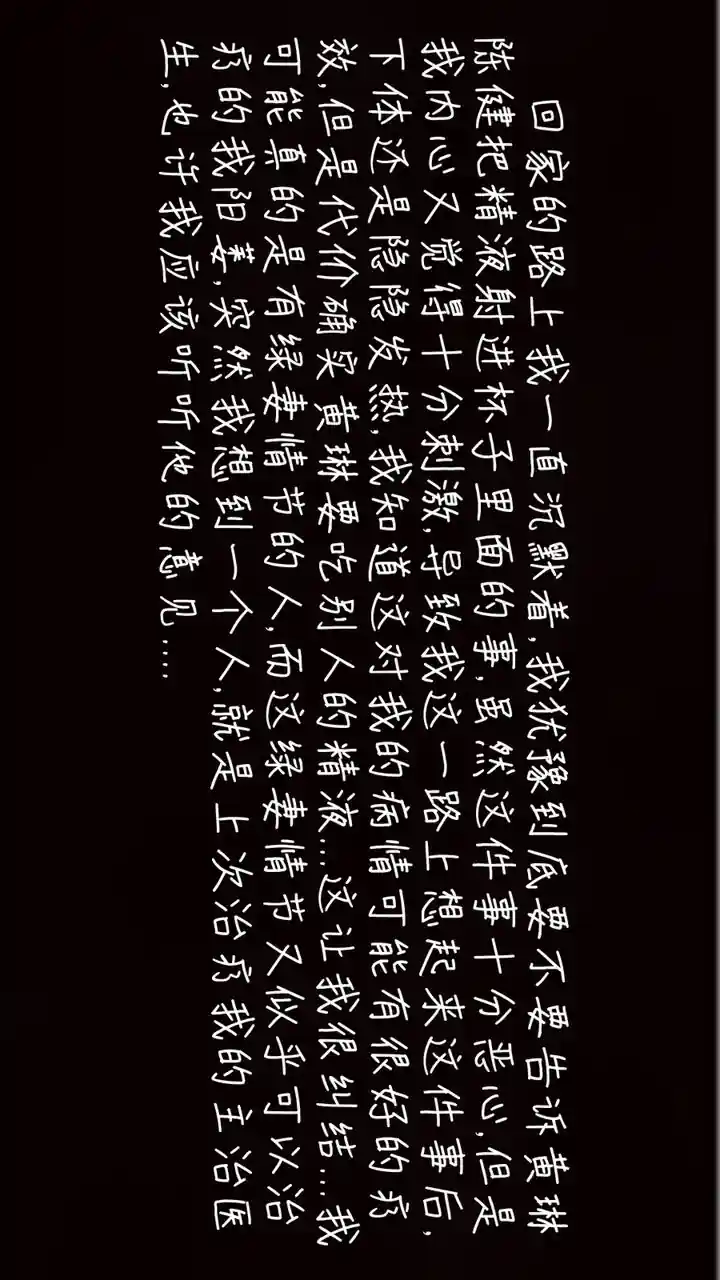 回家的路上我一直沉默着,我犹豫到底要不要告诉黄琳
陈健把精液射进杯子里面的事,虽然这件事十分恶心,但是
我内心又觉得十分刺激,导致我这一路上想起来这件事后,
下体还是隐隐发热,我知道这对我的病情可能有很好的疗
效,但是代价确实黄琳要吃别人的精液...这让我很纠结...我
可能真的是有绿妻情节的人,而这绿妻情节又似乎可以治
疗的我阳萎,突然我想到一个人,就是上次治疗我的主治医
生,也许我应该听听他的意见.....